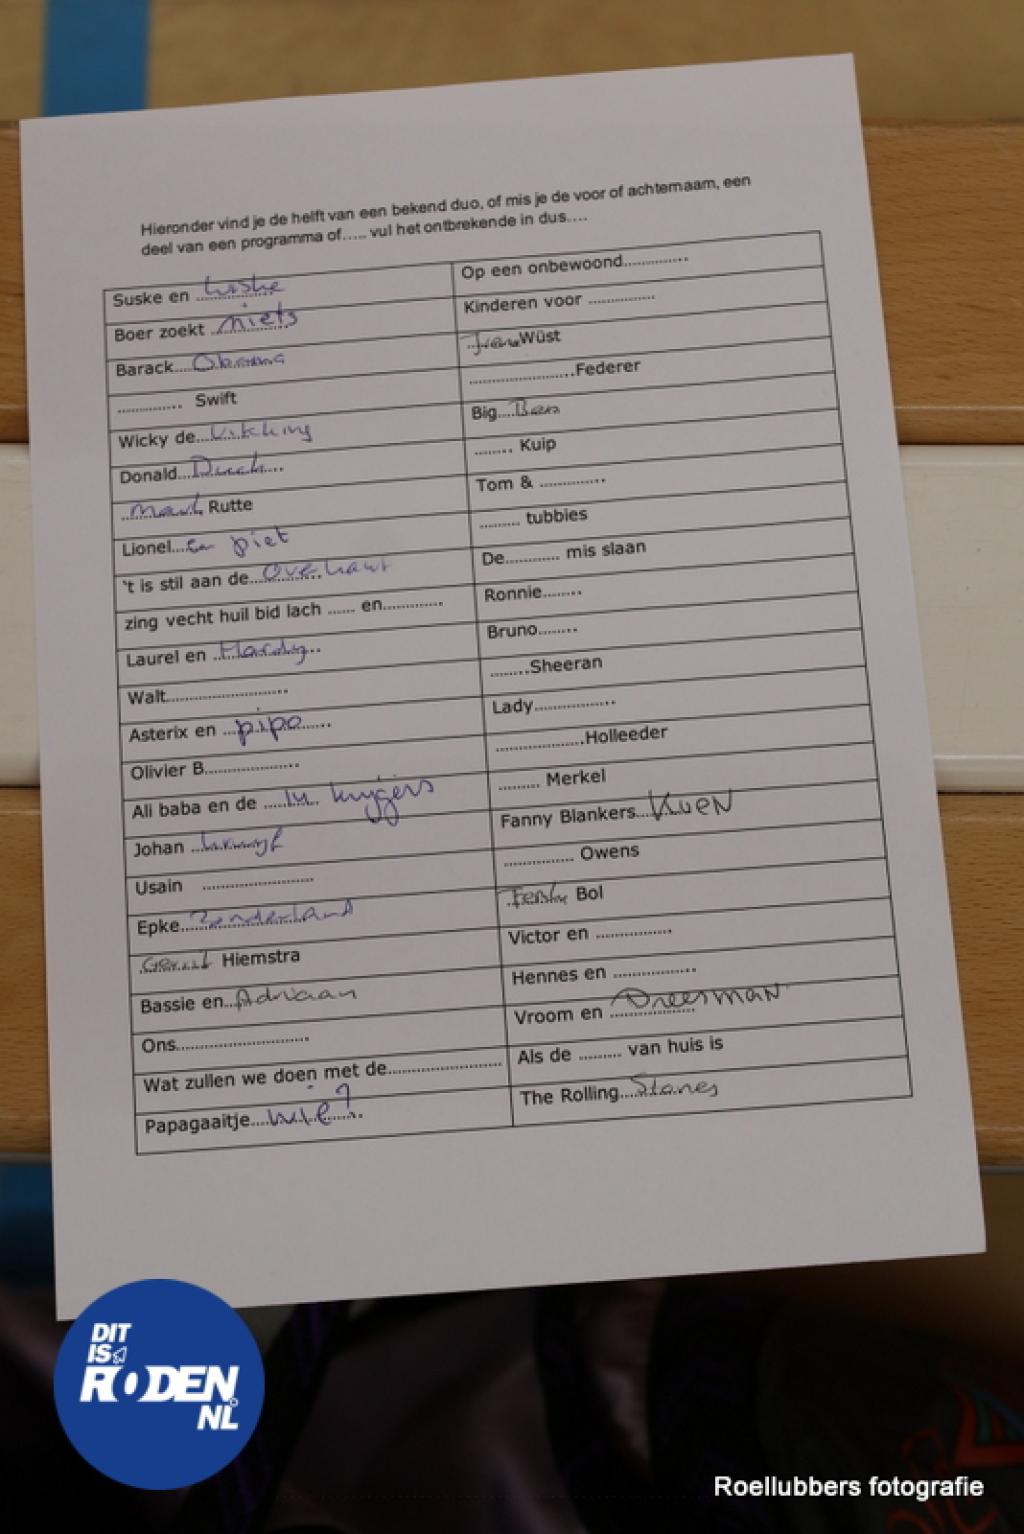 Hieronder vind je de helft van een bekend duo, of mis je de voor of achternaam, een
deel van een programma of..... vul het ontbrekende in dus....
Suske en ...Wiske
Boer zoekt ...niets
Barack....Obama
.............. Swift
Wicky de...Vikking
Donald...Duck....
...Mark Rutte
Lionel...en piet
't is stil aan de...Overkant
zing vecht huil bid lach ...... en.............
Laurel en ...Hardy...
Walt..........................
Asterix en ...pipo......
Olivier B....................
Ali baba en de ...... kruijers
Johan ...
Usain ........................
Epke...Zonderland
Gerrit Hiemstra
Bassie en...Adriaan
Ons............................
Wat zullen we doen met de........................
Papagaaitje....wie?....
Op een onbewoond..............
Kinderen voor ..............
...Wüst
.......................Federer
Big....Ben
........ Kuip
Tom & ..............
......... tubbies
De............ mis slaan
Ronnie........
Bruno........
.........Sheeran
Lady.................
....................Holleeder
......... Merkel
Fanny Blankers...KoEN
............... Owens
Femke Bol
Victor en .................
Hennes en ..................
Vroom en Dreesman
Als de ......... van huis is
The Rolling....Stones
DIT
IS
RODEN
.NL
Roellubbers fotografie